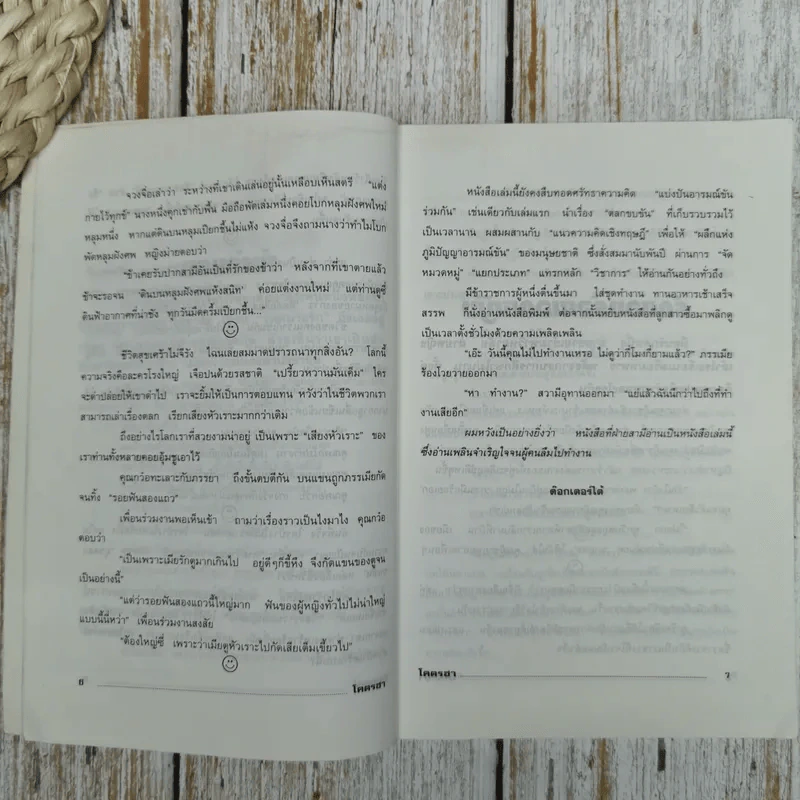 จวงจื่อเล่าว่า ระหว่างที่เขาเดินเล่นอยู่นั้นเหลือบเห็นสตรี "แต่ง
กายไว้ทุกข์" นางหนึ่งคุกเข่ากับพื้น มือถือพัดเล่มหนึ่งคอยโบกหลุมฝังศพใหม่
หลุมหนึ่ง หากแต่ดินบนหลุมเปียกชื้นไม่แห้ง จวงจื่อจึงถามนางว่าทำไมโบก
พัดหลุมฝังศพ หญิงม่ายตอบว่า
"ข้าเคยรับปากสามีอันเป็นที่รักของข้าว่า หลังจากที่เขาตายแล้ว
ข้าจะรอจน 'ดินบนหลุมฝังศพแห้งสนิท' ค่อยแต่งงานใหม่ แต่ท่านดูซี่
ดินฟ้าอากาศที่น่าชัง ทุกวันมืดครึ้มเปียกชื้น..."
ชีวิตสุขเศร้าไม่จีรัง ไฉนเลยสมมาดปรารถนาทุกสิ่งอัน? โลกนี้
ความจริงคือละครโรงใหญ่ เจือปนด้วยรสชาติ "เปรี้ยวหวานมันเค็ม" ใคร
จะด่าปล่อยให้เขาด่าไป เราจะยิ้มให้เป็นการตอบแทน หวังว่าในชีวิตพวกเรา
สามารถเล่าเรื่องตลก เรียกเสียงหัวเราะมากกว่าเดิม
ถึงอย่างไรโลกเราที่สวยงามน่าอยู่ เป็นเพราะ "เสียงหัวเราะ" ของ
เราท่านทั้งหลายคอยอุ้มชูเอาไว้
คุณกว้อทะเลาะกับภรรยา ถึงขั้นตบตีกัน บนแขนถูกภรรเมียกัด
จนทิ้ง "รอยฟันสองแถว"
เพื่อนร่วมงานพอเห็นเข้า ถามว่าเรื่องราวเป็นไงมาไง คุณกว้อ
ตอบว่า
"เป็นเพราะเมียรักดูมากเกินไป อยู่ดีๆก็ขี้หึง จึงกัดแขนของดูจน
เป็นอย่างนี้"
"แต่ว่ารอยฟันสองแถวนี้ใหญ่มาก ฟันของผู้หญิงทั่วไปไม่น่าใหญ่
แบบนี้นี่หว่า" เพื่อนร่วมงานสงสัย
"ต้องใหญ่ซี่ เพราะว่าเมียดูหัวเราะไปกัดเสียเต็มเขี้ยวไป"
๖
โคตรฮา
หนังสือเล่มนี้ยังคงสืบทอดศรัทธาความคิด "แบ่งปันอารมณ์ขัน
ร่วมกัน" เช่นเดียวกับเล่มแรก นำเรื่อง "ตลกขบขัน" ที่เก็บรวบรวมไว้
เป็นเวลานาน ผสมผสานกับ "แนวความคิดเชิงทฤษฎี" เพื่อให้ "ผลึกแห่ง
ภูมิปัญญาอารมณ์ขัน" ของมนุษยชาติ ซึ่งสั่งสมมานับพันปี ผ่านการ "จัด
หมวดหมู่" "แยกประเภท" แทรกหลัก "วิชาการ" ให้อ่านกันอย่างทั่วถึง
มีข้าราชการผู้หนึ่งตื่นขึ้นมา ใส่ชุดทำงาน ทานอาหารเช้าเสร็จ
สรรพ ก็นั่งอ่านหนังสือพิมพ์ ต่อจากนั้นหยิบหนังสือที่ลูกสาวซื้อมาพลิกดู
เป็นเวลาตั้งชั่วโมงด้วยความเพลิดเพลิน
"เอ๊ะ วันนี้คุณไม่ไปทำงานเหรอ ไม่ดูว่ากี่โมงกี่ยามแล้ว?" ภรรเมีย
ร้องโวยวายออกมา
"หา ทำงาน?" สวามีอุทานออกมา "แย่แล้วฉันนึกว่าไปถึงที่ทำ
งานเสียอีก"
ผมหวังเป็นอย่างยิ่งว่า หนังสือที่ฝ่ายสามีอ่านเป็นหนังสือเล่มนี้
ซึ่งอ่านเพลินจำเริญใจจนผู้คนลืมไปทำงาน
ด๊อกเตอร์ไต้
โคตรฮา
๗